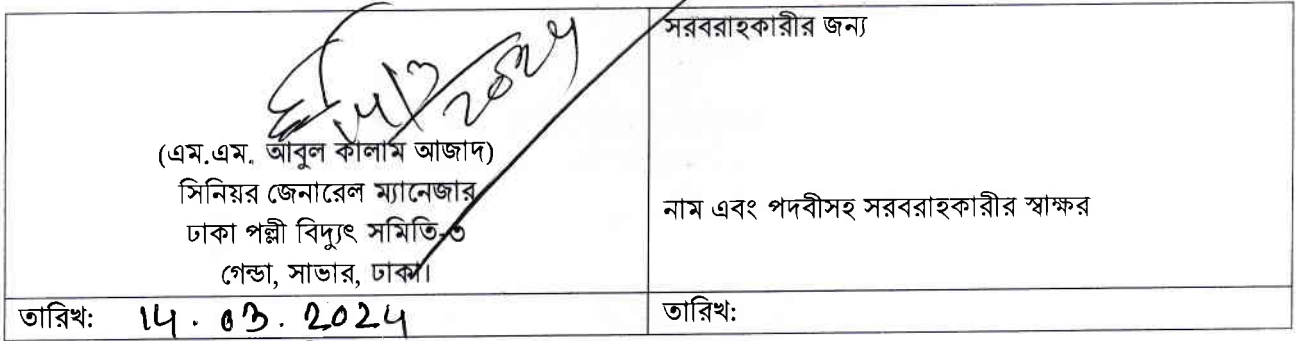 সরবরাহকারীর জন্য
(এম.এম. আবুল কালাম আজাদ)
সিনিয়র জেনারেল ম্যানেজার
ঢাকা পল্লী বিদ্যুৎ সমিতি-৩
গেন্ডা, সাভার, ঢাকা।
নাম এবং পদবীসহ সরবরাহকারীর স্বাক্ষর
তারিখ: 14.03.2024
তারিখ: